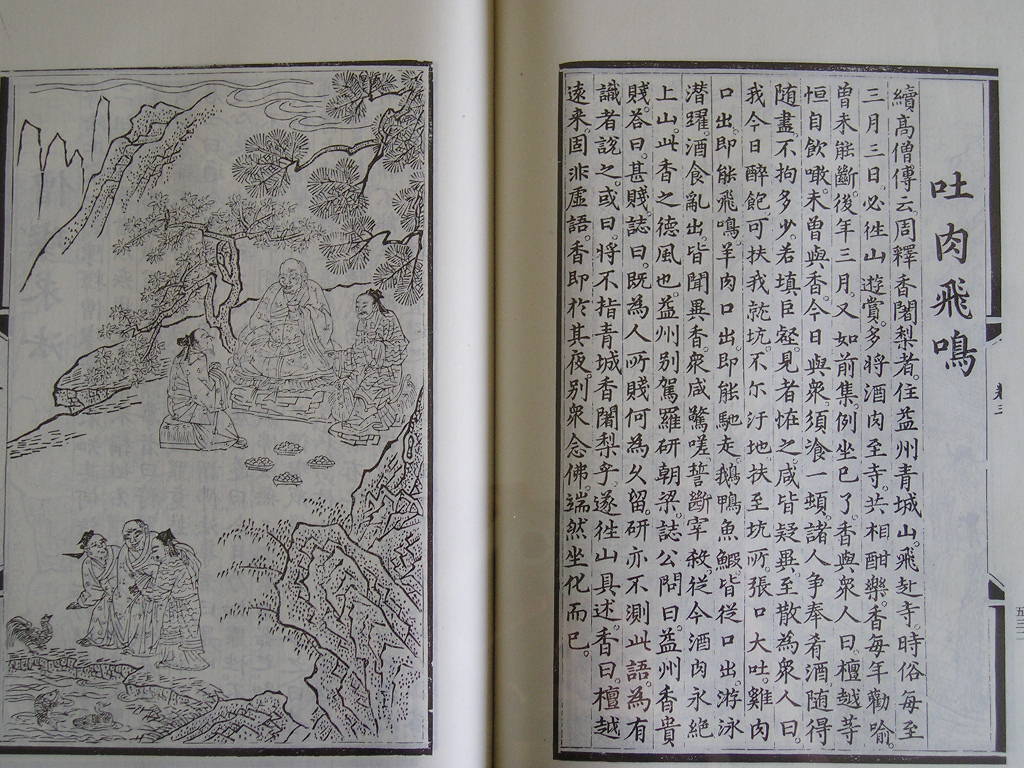 吐肉飛鳴
續高僧傳云。周釋香闍梨者。住益州青城山飛赴寺。時俗每至
三月三日。必往山遊賞。多將酒肉至寺。共相酣樂。香每年勸喻。
曾未能斷。後年三月。又如前集。例坐已了。香與眾人曰。檀越等
恒自飲噉。未曾與香。今日與眾。須飡一頓。諸人爭奉肴酒。隨得
隨盡。不拘多少。若填巨壑。見者恠之。咸皆疑異。至散為眾人曰。
我今日醉飽。可扶我就坑。不尓汙地。扶至坑所。張口大吐。雞肉
口出。即能飛鳴。羊肉口出。即能馳走。鵝鴨魚鰕。皆從口出。游泳
潛躍。酒食亂出。皆聞異香。眾咸驚嗟。誓斷宰殺。從今酒肉永絕
上山。此香之德風也。益州別駕羅研朝梁。誌公問曰。益州香貴
賤。荅曰。甚賤。誌曰。既為人所賤。何為久留。研亦不測此語。為有
識者說之。或曰。將不指青城香闍梨乎。遂往山具述。香曰。檀越
遠來。固非虛語。香即於其夜別眾念佛。端然坐化而已。
卷三
五三